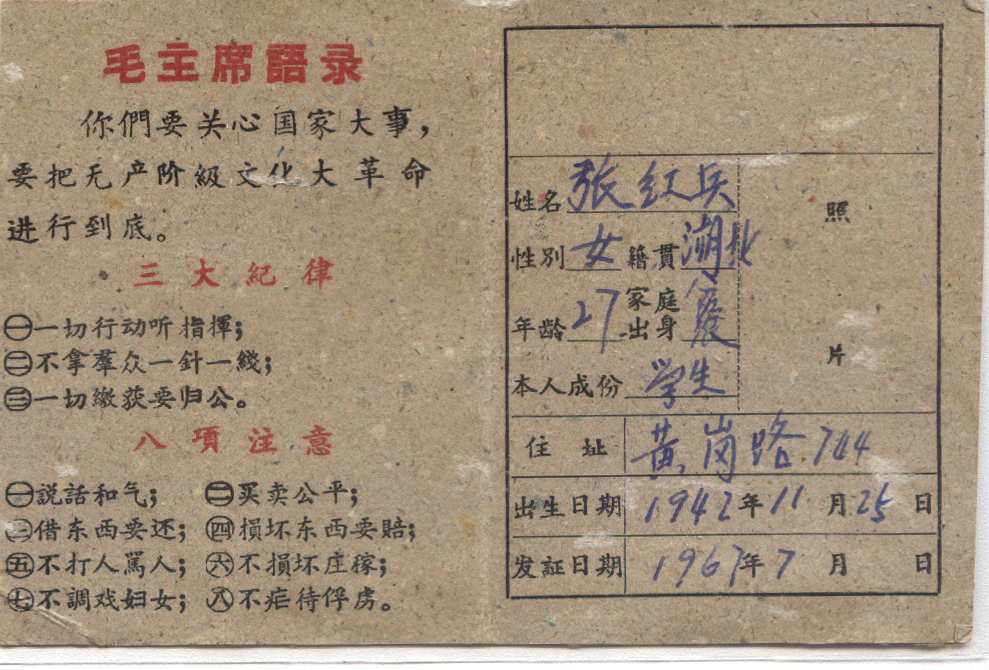 毛主席語录
你們要关心国家大事，
要把无产阶級文化大革命
进行到底。
三大紀律
㊀一切行动听指揮；
㊁不拿羣众一針一綫；
㊂一切繳获要归公。
八項注意
㊀說話和气； ㊁买卖公平；
㊂借东西要还； ㊃損坏东西要賠；
㊄不打人罵人； ㊅不損坏庄稼；
㊆不調戏妇女； ㊇不疟待俘虏。
姓名 张红兵
性別 女 籍貫 湖北
年龄 27 家庭出身
本人成份 学生
照
片
住址 黄岗路 744
出生日期 1942年11月25日
发証日期 1967年7月 日